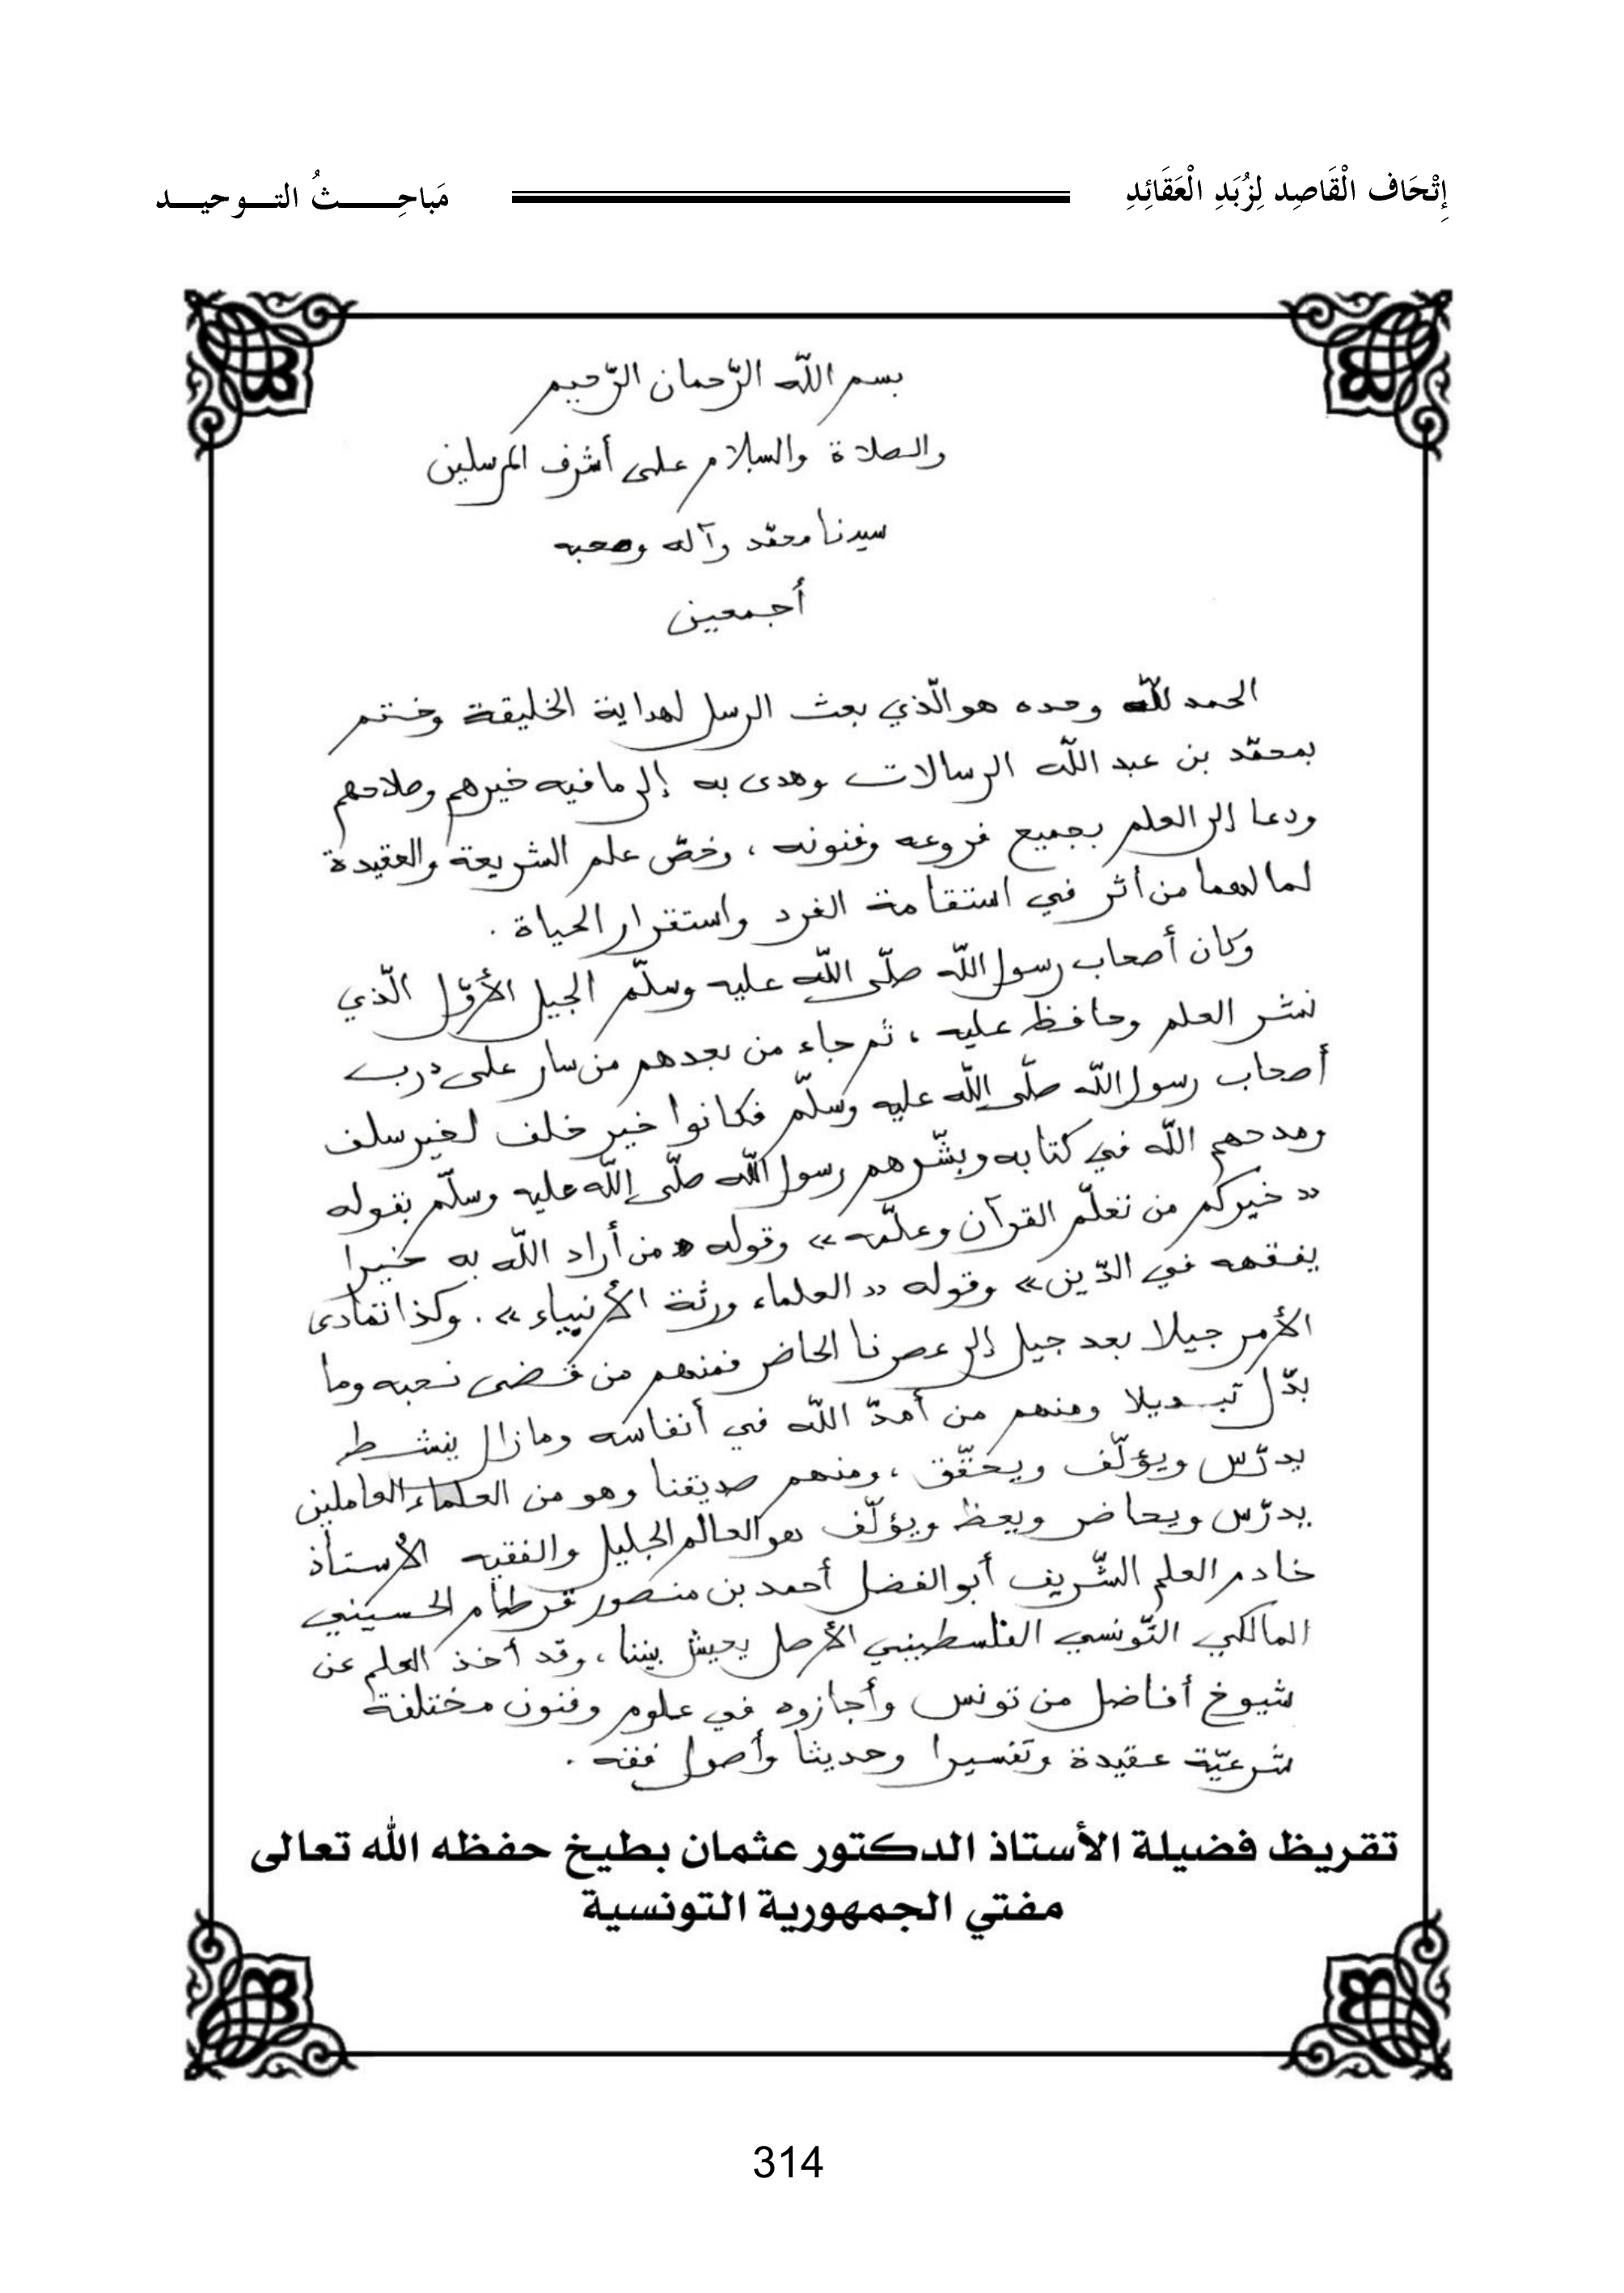 إِتْحَاف الْقَاصِد لِزُبَدِ الْعَقَائِدِ
مَباحِــــــثُ التــوحيــد
بسم اللّه الرّحمان الرّحيم
والصلاة والسلام على أشرف المرسلين
سيدنا محمّد وآله وصحبه
أجمعين
الحمد للّه وحده هو الّذي بعث الرسل لهداية الخليقة وختم
بمحمّد بن عبد اللّه الرسالات وهدى به إلى ما فيه خيرهم وصلاحهم
ودعا إلى العلم بجميع فروعه وفنونه ، وخصّ علم الشريعة والعقيدة
لما لهما من أثر في استقامة الفرد واستقرار الحياة .
وكان أصحاب رسول اللّه صلّى اللّه عليه وسلّم الجيل الأوّل الّذي
نشر العلم وحافظ عليه ، ثم جاء من بعدهم من سار على درب
أصحاب رسول اللّه صلّى اللّه عليه وسلّم فكانوا خير خلف لخير سلف
ومدحهم اللّه في كتابه وبشّرهم رسول اللّه صلّى اللّه عليه وسلّم بقوله
« خيركم من تعلّم القرآن وعلّمه » وقوله « من أراد اللّه به خيرا
يفقهه في الدّين » وقوله « العلماء ورثة الأنبياء » . وكذا تمادى
الأمر جيلا بعد جيل إلى عصرنا الحاضر فمنهم من قضى نحبه وما
بدّل تبديلا ومنهم من أمدّ اللّه في أنفاسه وما زال ينشط
يدرّس ويؤلّف ويحقّق ، ومنهم صديقنا وهو من العلماء العاملين
يدرّس ويحاضر ويعظ ويؤلّف هو العالم الجليل والفقيه الأستاذ
خادم العلم الشّريف أبو الفضل أحمد بن منصور قرطام الحسيني
المالكي التّونسي الفلسطيني الأصل يعيش بيننا ، وقد أخذ العلم عن
شيوخ أفاضل من تونس وأجازوه في علوم وفنون مختلفة
شرعيّة عقيدة وتفسيرا وحديثا وأصول فقه .
تقريظ فضيلة الأستاذ الدكتور عثمان بطيخ حفظه الله تعالى
مفتي الجمهورية التونسية
314